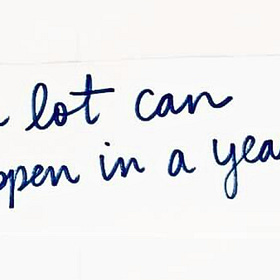 a lot can
appen in a yea